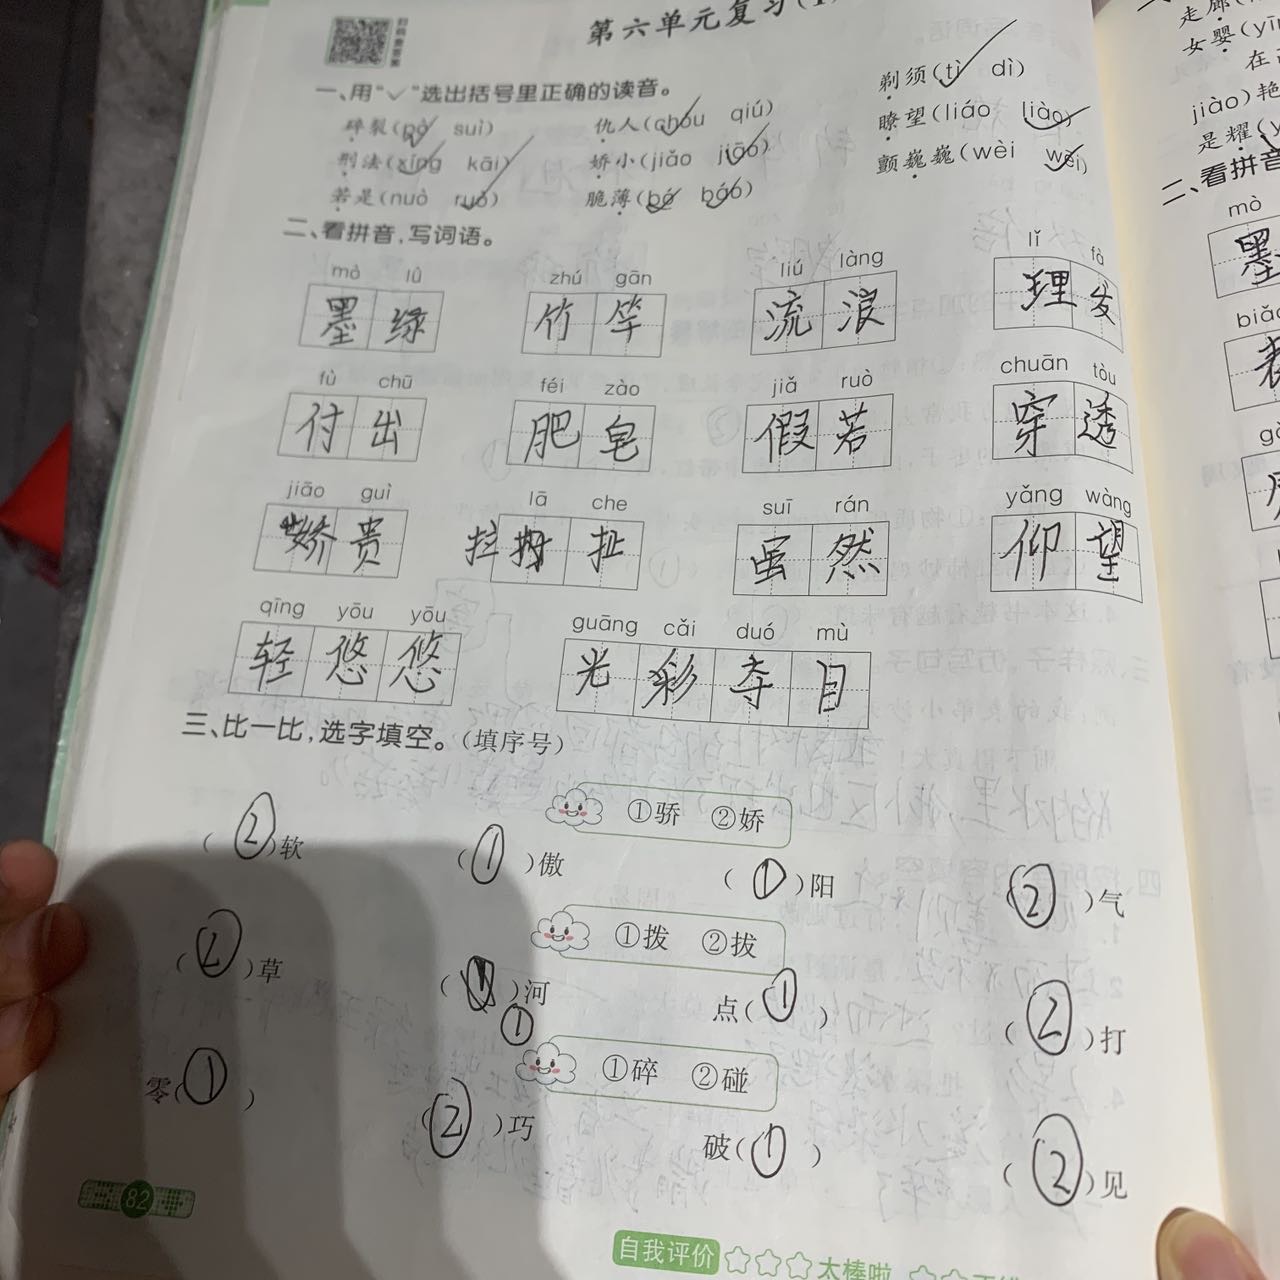 扫码查答案
第六单元复习(1
一、用“✓”选出括号里正确的读音。
碎裂(pò suì) 仇人(chóu qiú) 剃须(tì dì)
刑法(xíng kāi) 娇小(jiǎo jiāo) 瞭望(liáo liào)
若是(nuò ruò) 脆薄(bó báo) 颤巍巍(wèi wēi)
二、看拼音,写词语。
mò lǜ zhú gān liú làng lǐ fà
墨绿 竹竿 流浪 理发
fù chū féi zào jiǎ ruò chuān tòu
付出 肥皂 假若 穿透
jiāo guì lā che suī rán yǎng wàng
娇贵 拉扯 虽然 仰望
qīng yōu yōu guāng cǎi duó mù
轻悠悠 光彩夺目
三、比一比,选字填空。(填序号)
①骄 ②娇
(②)软 (①)傲 (①)阳 (②)气
①拨 ②拔
(②)草 ( )河 点(①) (②)打
①
①碎 ②碰
零(①) (②)巧 破(①) (②)见
82
自我评价 ☆☆☆太棒啦 ☆☆
走廊(
女婴(yīn
jiào)艳
是耀(y
二、看拼音
mò
墨
biǎo
表